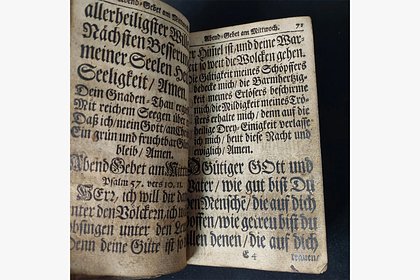 Abend-Gebet am Mittwo
allerheiligster Wil
Nächsten Besserun
meiner Seelen He
Seeligkeit / Amen.
Dein Gnaden-Thau erg
Mit reichem Seegen über
Daß ich / mein Gott / am
Ein grün und fruchtbar
bleib / Amen.
Abend Gebet am Mitt
Psalm 57. vers 10. 11.
HErr, ich will dir da
unter den Völckern, ich w
lobsingen unter den Leu
Denn deine Güte ist so
Abend-Gebet am Mittwoch. 71
der Him̃el ist, und deine War-
heit so weit die Wolcken gehen.
Die Gütigkeit meines Schöpffers
bedecke mich / die Barmhertzig-
keit meines Erlösers beschirme
mich / die Mildigkeit meines Trö-
sters erhalte mich / denn auf die
heilige Drey-Einigkeit verlasse
ich mich / heut diese Nacht und
ewiglich / Amen.
O Gütiger GOtt und
Vater / wie gut bist Du
den Menschẽ / die auf dich
hoffen / wie getreu bist du
allen denen / die auf dich
E 4 trauen /